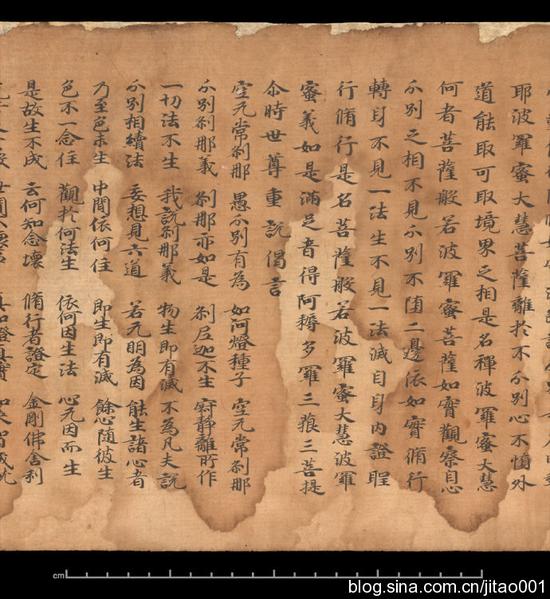 耶波羅蜜大慧菩薩離於分別心不隨外
道能取可取境界之相是名禪波羅蜜大慧
何者菩薩般若波羅蜜菩薩如實觀察自心
分別之相不見分別不墮二邊依如實脩行
轉身不見一法生不見一法滅自身內證聖
行脩行是名菩薩般若波羅蜜大慧波羅
蜜義如是滿足者得阿耨多羅三藐三菩提
尒時世尊重說偈言
空无常刹那 愚分別有為 如河燈種子 空无常刹那
分別刹那義 刹那亦如是 刹尼迦不生 寂靜離所作
一切法不生 我說刹那義 物生即有滅 不為凡夫說
分別相續法 妄想見六道 若无明為因 能生諸心者
乃至色未生 中間依何住 即生即有滅 餘心隨彼生
色不一念住 觀於何法生 依何因生法 心无因而生
是故生不成 云何知念壞 脩行者證定 金剛佛舍利
cm
blog.sina.com.cn/jitao001